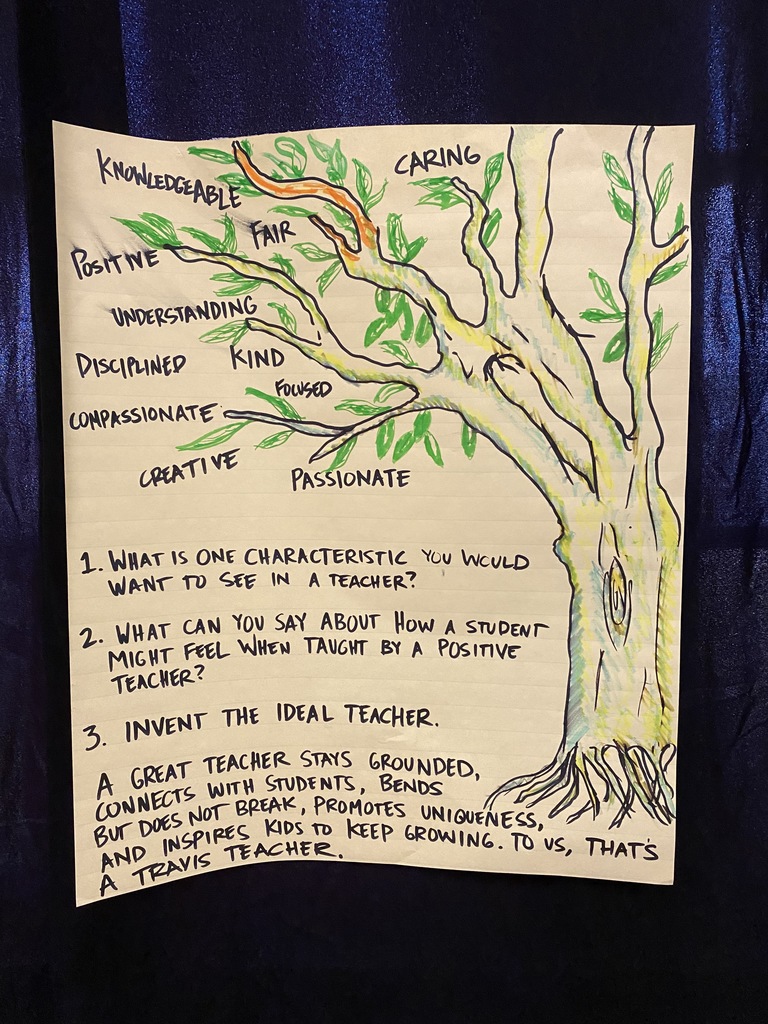 KNOWLEDGEABLE
CARING
FAIR
POSITIVE
UNDERSTANDING
DISCIPLINED
KIND
FOCUSED
COMPASSIONATE
CREATIVE
PASSIONATE
1. WHAT IS ONE CHARACTERISTIC YOU WOULD
WANT TO SEE IN A TEACHER?
2. WHAT CAN YOU SAY ABOUT HOW A STUDENT
MIGHT FEEL WHEN TAUGHT BY A POSITIVE
TEACHER?
3. INVENT THE IDEAL TEACHER.
A GREAT TEACHER STAYS GROUNDED,
CONNECTS WITH STUDENTS, BENDS
BUT DOES NOT BREAK, PROMOTES UNIQUENESS,
AND INSPIRES KIDS TO KEEP GROWING. TO US, THAT'S
A TRAVIS TEACHER.